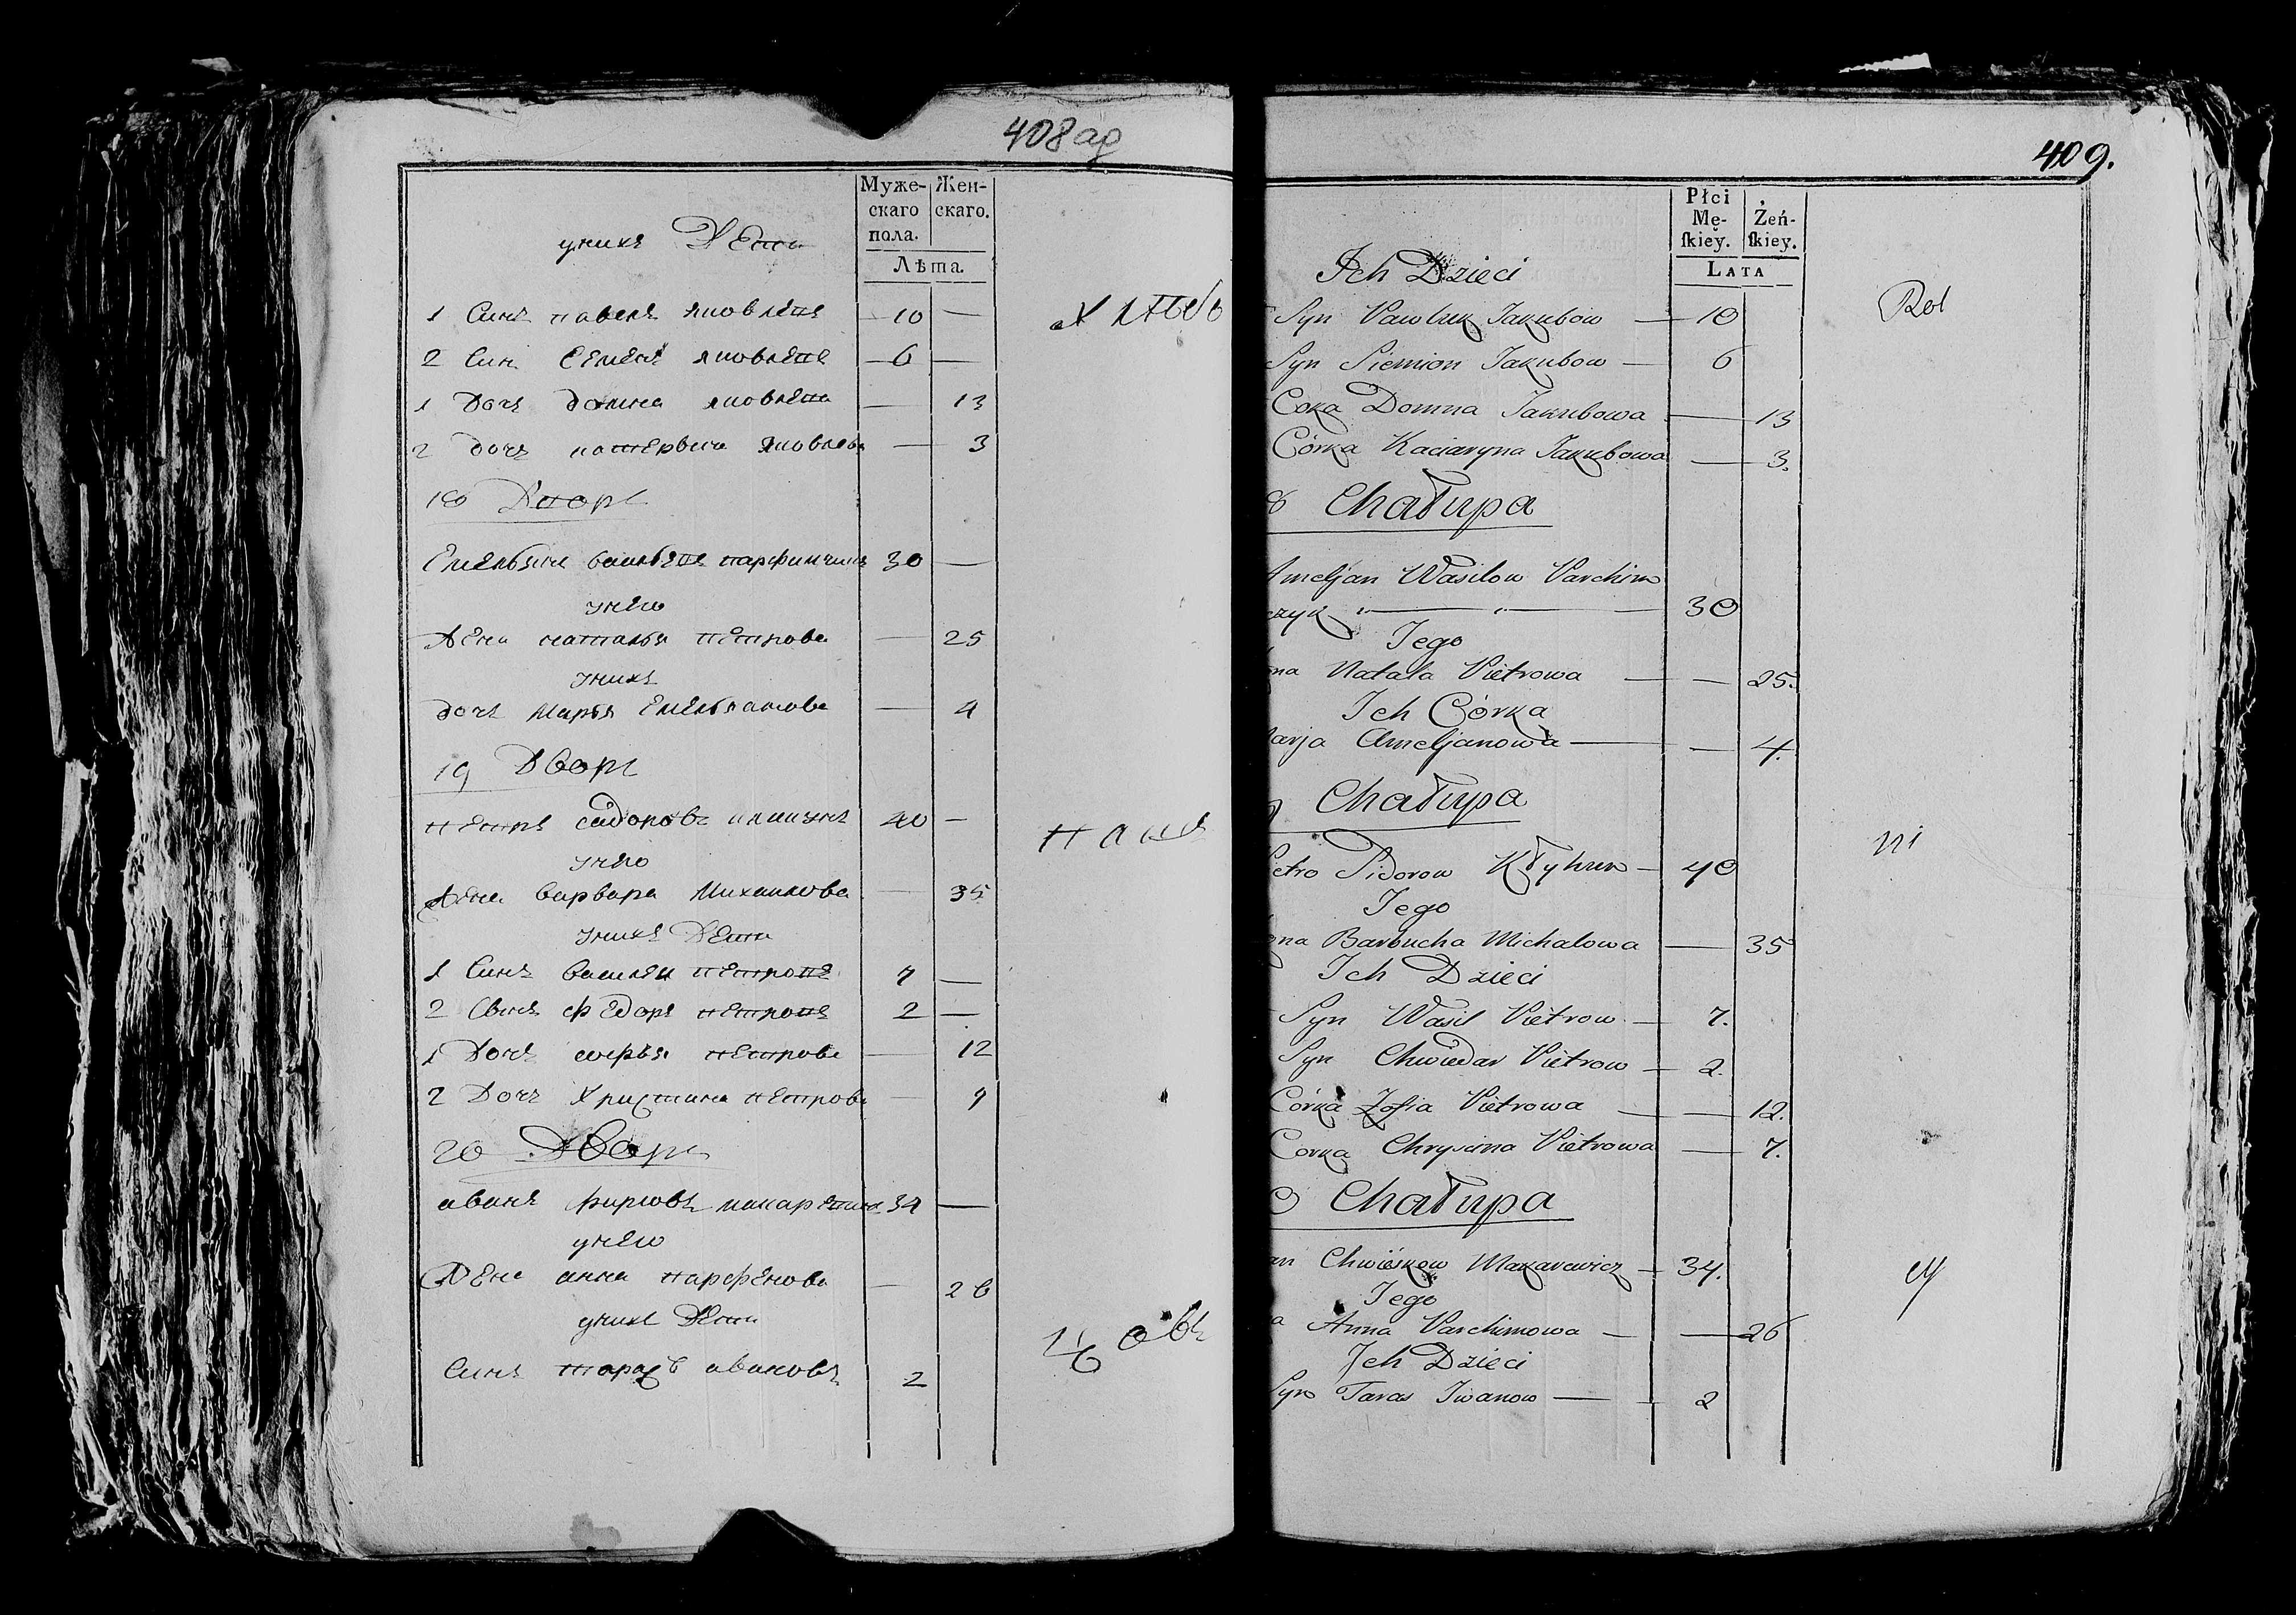 408 ад
Муже-
скаго
пола.
Жен-
скаго.
Лѣта.
уних дети
1 Синъ павелъ яковлевъ — 10 — хлебо
2 Син Семенъ яковлевъ — 6 —
1 Дочъ домна яковлева — 13
2 дочъ катерына яковлева — 3
18 Дворъ
Емельянъ васильевъ парфимчикъ 30 —
унего
Жена наталья петрова — 25
унихъ
дочъ марья Емельянова — 4
19 Дворъ
петръ сидоровъ 40 — паше
унего
Жена варвара михаилова — 35
унихъ дети
1 Синъ василеи петровъ 7 —
2 Синъ федоръ петровъ 2 —
1 Дочъ софья петрова — 12
2 Дочъ Христина петрова — 7
20 Дворъ
иванъ фирсовъ 34 —
унего
Жена анна парфенова — 26
унихъ дети
Синъ тарасъ ивановъ 2 цовъ
409.
Płci
Mę-
ſkiey.
Żeń-
ſkiey.
Lata
Ich Dzieci
Syn Pawluk Jakubow — 10 Rol
Syn Siemion Jakubow — 6
Coka Domna Jakubowa — 13
Córka Kaciaryna Jakubowa — 3.
8 Chałupa
Ameljan Wasilow Parchim
czyk " — " — 30
Jego
ona Natala Pietrowa — — 25.
Ich Córka
Marja Ameljanowa — — 4.
9 Chałupa
Pietro Sidorow — 40 ni
Jego
ona Barbucha Michalowa — 35
Ich Dzieci
Syn Wasil Pietrow — 7.
Syn Chwiedar Pietrow — 2.
Córka Zofia Pietrowa — — 12.
Corka Chrysina Pietrowa — 7.
0 Chałupa
an Chwiéskow Makarewicz — 34. cy
Jego
a Anna Parchimowa — — 26
Ich Dzieci
Syn Taras Iwanow — 2